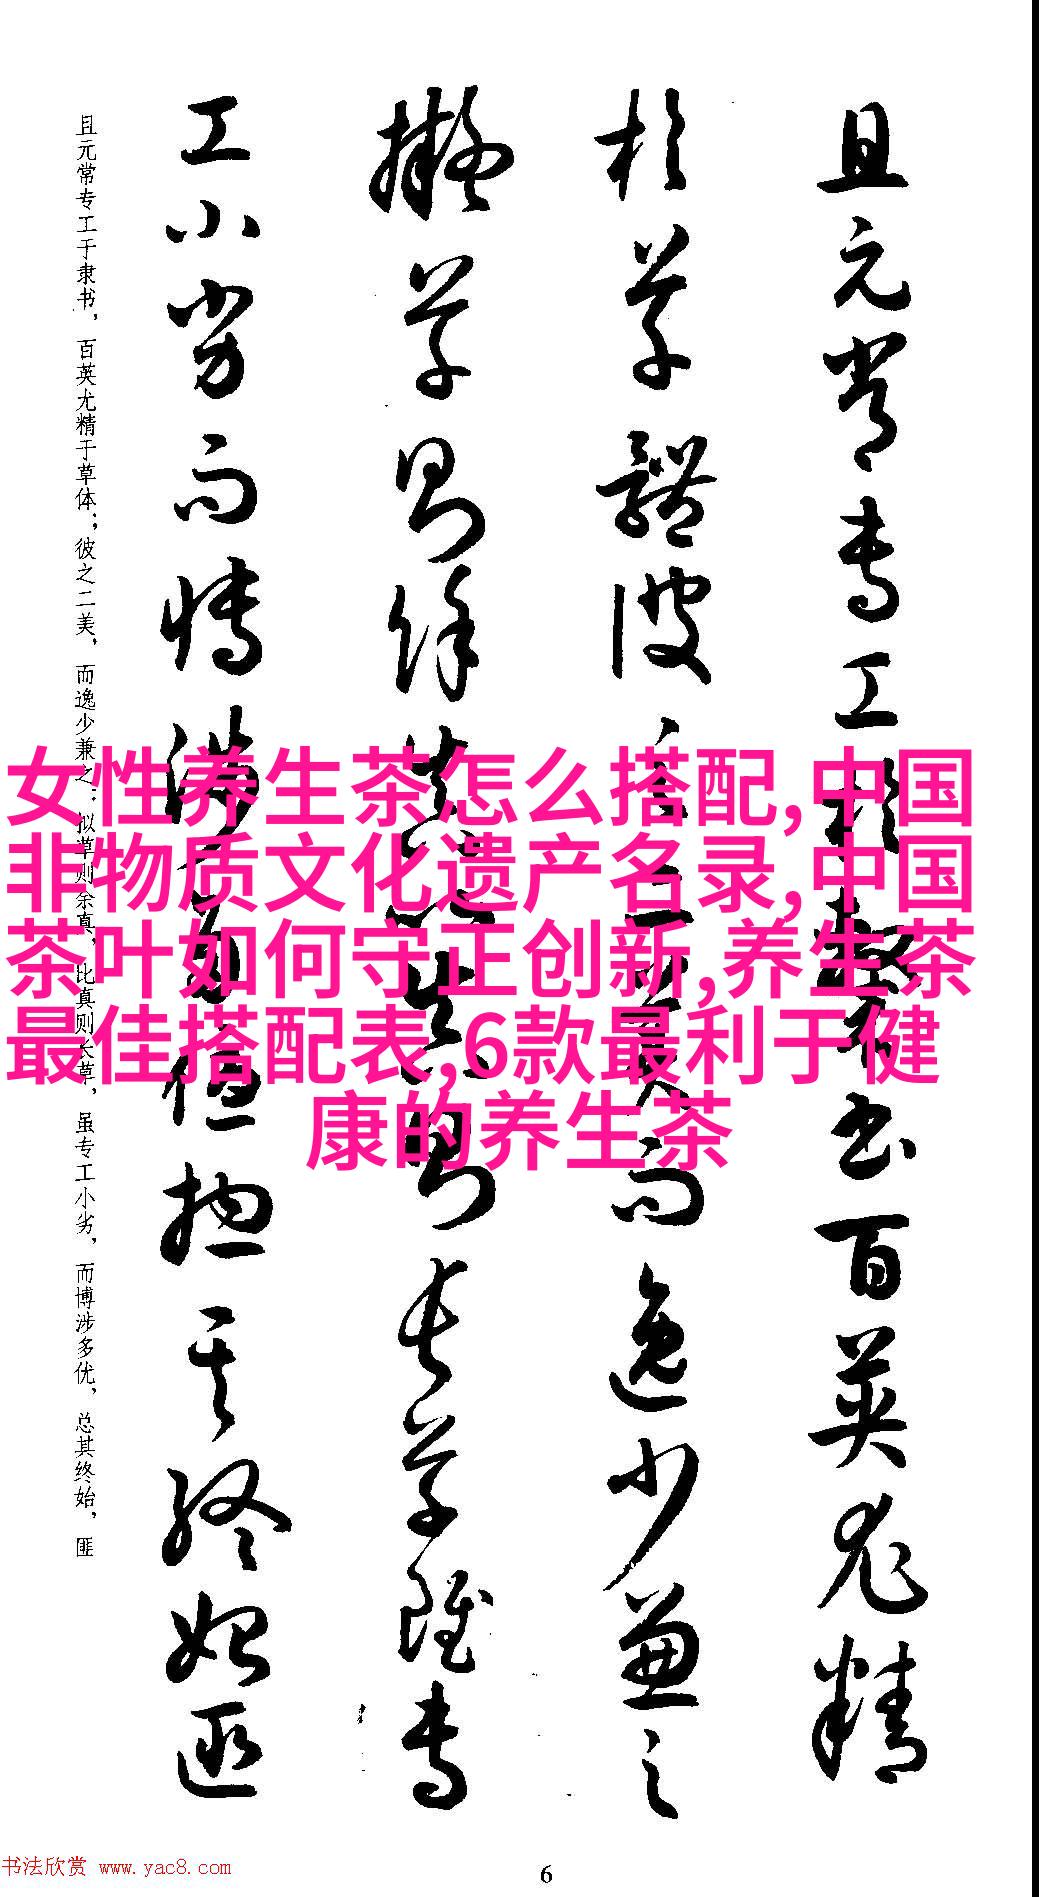 且元常專工於隸書百英尤精
於草體彼之二美而逸少兼之
擬草則餘真比真則長草雖專
工小劣而博涉多優揔其終始匪
且元常专工于隶书，百英尤精于草体；彼之二美，而逸少兼之。拟草则余真，比真则长草，虽专工小劣，而博涉多优，总其终始，匪
女性养生茶怎么搭配,中国
非物质文化遗产名录,中国
茶叶如何守正创新,养生茶
最佳搭配表,6款最利于健
康的养生茶
书法欣赏 www.yac8.com
6